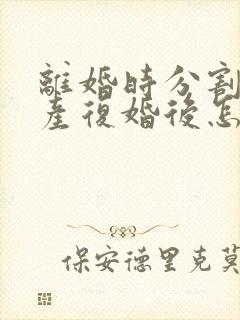 離婚時分割
産復婚後怎
保安德里克莫